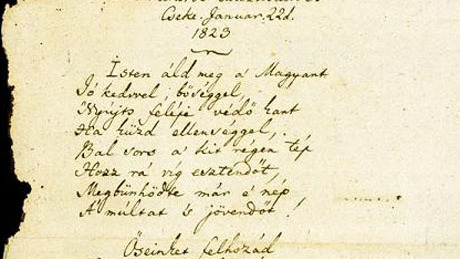 Cseke. Januar. 22d.
1823
Isten áld meg a' Magyart
Jó kedvvel, bőséggel,
Nyújts feléje védő kart
Ha küzd ellenséggel,
Bal sors a' kit régen tép
Hozz rá víg esztendőt,
Megbűnhődte már e' nép
A' multat 's jövendőt!
Őseinket felhozád